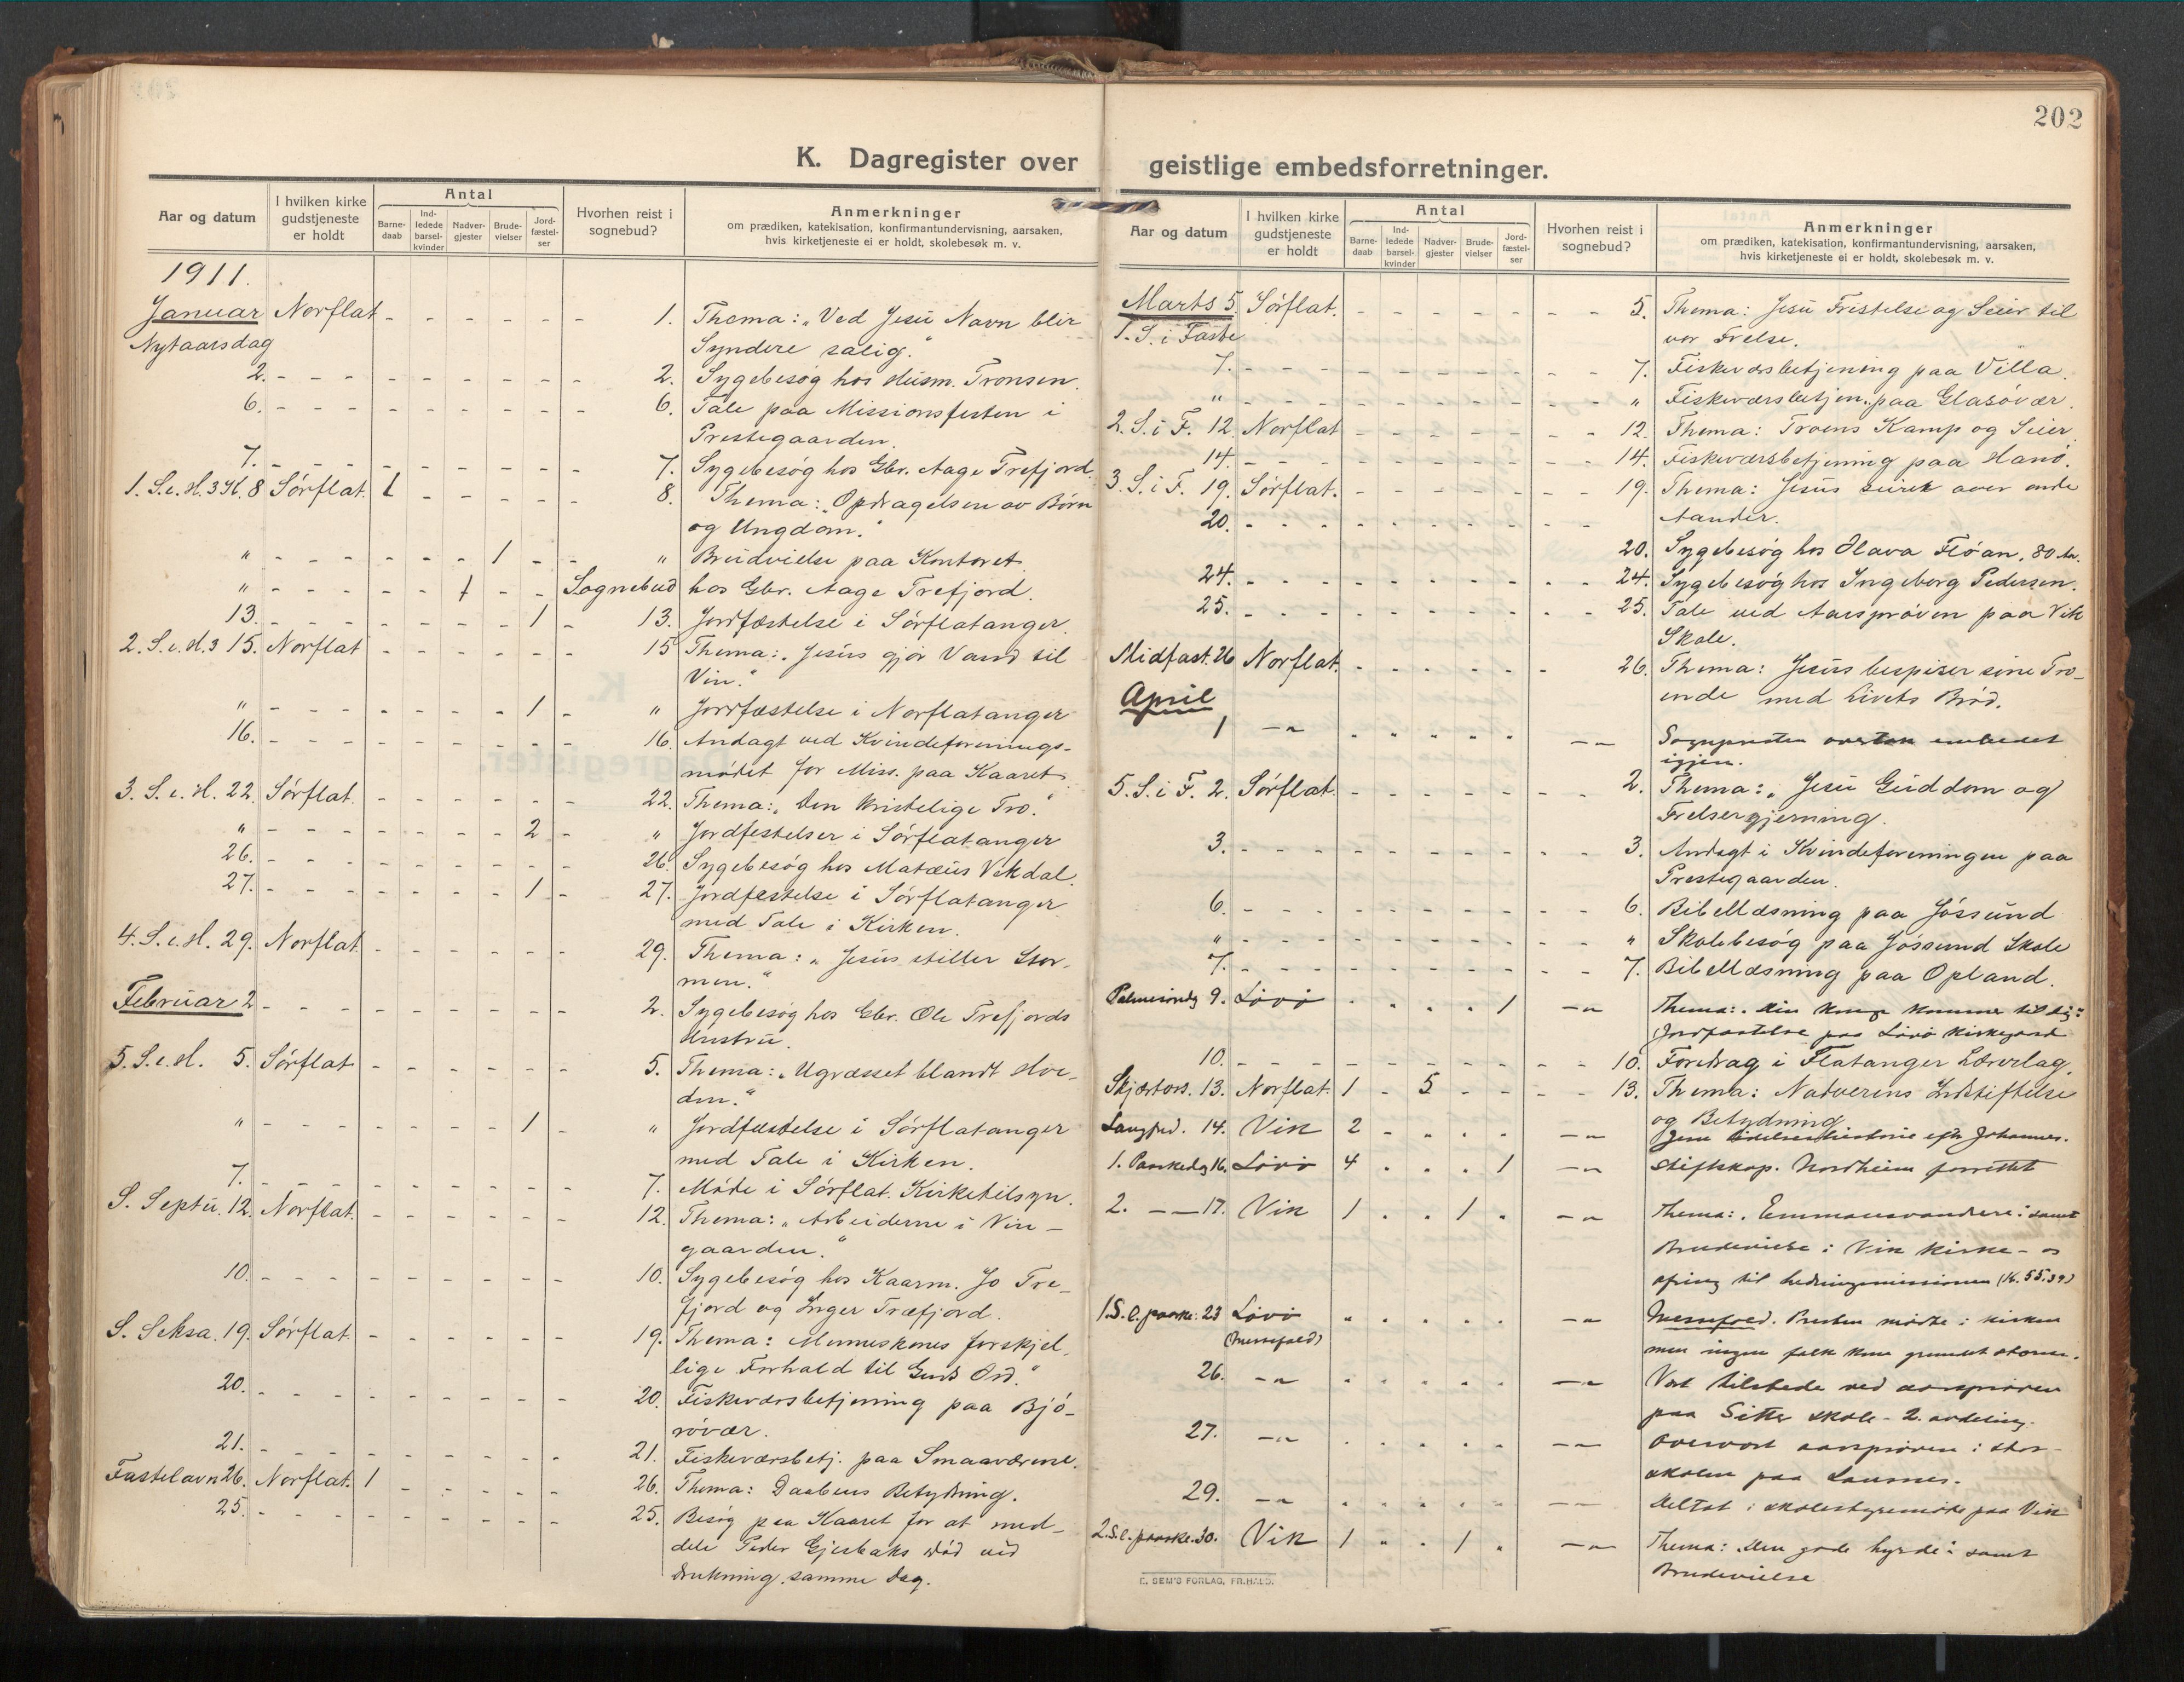 202
K. Dagregister over geistlige embedsforretninger.
Aar og datum
I hvilken kirke gudstjeneste er holdt
Antal
Barne-daab
Ind-ledede barsel-kvinder
Nadver-gjester
Brude-vielser
Jord-fæstel-ser
Hvorhen reist i sognebud?
Anmerkninger
om prædiken, katekisation, konfirmantundervisning, aarsaken,
hvis kirketjeneste ei er holdt, skolebesøk m. v.
1911.
Januar Norflat - - - - - - 1. Thema: „Ved Jesu Navn blir
Nytaarsdag Syndere salig."
2. - - - - - - - - - 2. Sygebesøg hos Husm. Tronsen.
6. - - - - - - - - - 6. Tale paa Missionsfesten i
Prestegaarden.
7. - - - - - - - - - 7. Sygebesøg hos Gbr. Aage Trefjord.
1. S. e. H. 3 K. 8 Sørflat. 1 - - - - - 8. Thema: „Opdragelsen av Børn
og Ungdom."
" - - - - - - 1 - - " Brudvielse paa Kontoret.
" - - - - - 1 - - Sognebud hos Gbr. Aage Trefjord.
13. - - - - - - - 1 - 13. Jordfæstelse i Sørflatanger.
2. S. e. H. 3 15. Norflat - - - - - - 15 Thema: „Jesus gjør Vand til
Vin."
" - - - - - - - 1 - " Jordfæstelse i Norflatanger
16. - - - - - - - - - 16. Andagt ved Kvindeforenings-
mødet for Miss. paa Kaaret.
3. S. e. H. 22. Sørflat. - - - - - - 22. Thema: „Den kristelige Tro."
" - - - - - - - 2 - " Jordfestelser i Sørflatanger
26. - - - - - - - - - 26. Sygebesøg hos Matæus Vekdal.
27. - - - - - - - 1 - 27. Jordfestelse i Sørflatanger
med Tale i Kirken.
4. S. e. H. 29. Norflat - - - - - - 29. Thema: „Jesus stiller Stor-
men."
Februar 2 - - - - - - - - - 2. Sygebesøg hos Gbr. Ole Trefjords
Hustru.
5. S. e. H. 5. Sørflat - - - - - - 5. Thema: „Ugræsset blandt Hve-
den."
" - - - - - - - 1 - " Jordfæstelse i Sørflatanger
med Tale i Kirken.
7. - - - - - - - - - 7. Møde i Sørflat. Kirketilsyn.
S. Septu. 12. Norflat. - - - - - - 12. Thema: „Arbeiderne i Vin-
gaarden."
10. - - - - - - - - - 10. Sygebesøg hos Kaarm. Jo Tre-
fjord og Inger Træfjord.
S. Seksa. 19. Sørflat. - - - - - - 19. Thema: Menneskenes forskjel-
lige Forhold til Guds Ord."
20. - - - - - - - - - 20. Fiskeværsbetjening paa Bjø-
røvær.
21. - - - - - - - - - 21. Fiskeværsbetj. paa Smaaværene.
Fastelavn 26. Norflat. 1 - - - - - 26. Thema: Daabens Betydning.
25. - - - - - - - - - 25. Besøg paa Kaaret for at med-
dele Peder Gjesbaks Død ved
Drukning samme Dag.
Aar og datum
I hvilken kirke gudstjeneste er holdt
Antal
Barne-daab
Ind-ledede barsel-kvinder
Nadver-gjester
Brude-vielser
Jord-fæstel-ser
Hvorhen reist i sognebud?
Anmerkninger
om prædiken, katekisation, konfirmantundervisning, aarsaken,
hvis kirketjeneste ei er holdt, skolebesøk m. v.
Marts 5. Sørflat. - - - - - - - 5. Thema: Jesu Fristelse og Seier til
1. S. i Faste vor Frelse.
7. - - - - - - - - - 7. Fiskeværsbetjening paa Villa.
" - - - - - - - - - " Fiskeværsbetjen. paa Glasøvær.
2. S. i F. 12. Norflat - - - - - - - 12. Thema: Troens Kamp og Seier.
14. - - - - - - - - - 14. Fiskeværsbetjening paa Hanø.
3. S. i F. 19. Sørflat. - - - - - - - 19. Thema: Jesus seirer over onde
Aander.
20. - - - - - - - - - 20. Sygebesøg hos Olava Fløan, 80 Aar.
24. - - - - - - - - - 24. Sygebesøg hos Ingeborg Pedersen.
25. - - - - - - - - - 25. Tale ved Aarsprøven paa Vik
Skole.
Midfast. 26 Norflat. - - - - - - 26. Thema: Jesus bespiser sine Tro-
ende med Livets Brød.
April
1 -"- " " " " " -"- Sognepresten overtok embedet
igjen.
5. S. i F. 2. Sørflat. - - - - - - - 2. Thema: „Jesu Guddom og
Frelsergjerning.
3. - - - - - - - - - 3. Andagt i Kvindeforeningen paa
Prestegaarden.
6. - - - - - - - - - 6. Bibellæsning paa Jøssund
" - - - - - - - - - " Skolebesøg paa Jøssund Skole
7. - - - - - - - - - 7. Bibellæsning paa Opland.
Palmesøndg 9. Løvø " " " " 1 -"- Thema: „Din konge kommer til dig"
Jordfæstelse paa Løvø kirkegaard
10. - - - - - - - - - 10. Foredrag i Flatanger Lærerlag.
Skjærtors. 13. Norflat. 1 - 5 - - - - 13. Thema: Nadverens Indstiftelse
og Betydning
Langfred. 14. Vik 2 " " " " -"- Jesu lidelseshistorie efter Johannes.
1. Paaskedg 16. Løvø 4 " " " 1 -"- Stiftskap. Nordheim forrettet
2. -"- 17. Vik 1 " " 1 " -"- Thema: „Emmausvandrere" samt
Brudevielse i Vik kirke - og
ofring til hedningemissionen (K. 55.39)
1. S. e. paaske: 23 Løvø " " " " " -"- Messefald. Presten mødte i kirken
(messefald) men ingen folk kom grundet storm.
26. -"- " " " " " -"- Vært tilstede ved aarsprøven
paa Sitter skole - 2. avdeling.
27. -"- " " " " " -"- Overvært aarsprøven i stor-
skolen paa Lausnes.
29. -"- " " " " " -"- Deltat i skolestyremøte paa Vik
2. S. e. paaske. 30. Vik 1 " " 1 " -"- Thema: „Den gode hyrde" samt
Brudevielse
E. SEM'S FORLAG, FR.HALD.